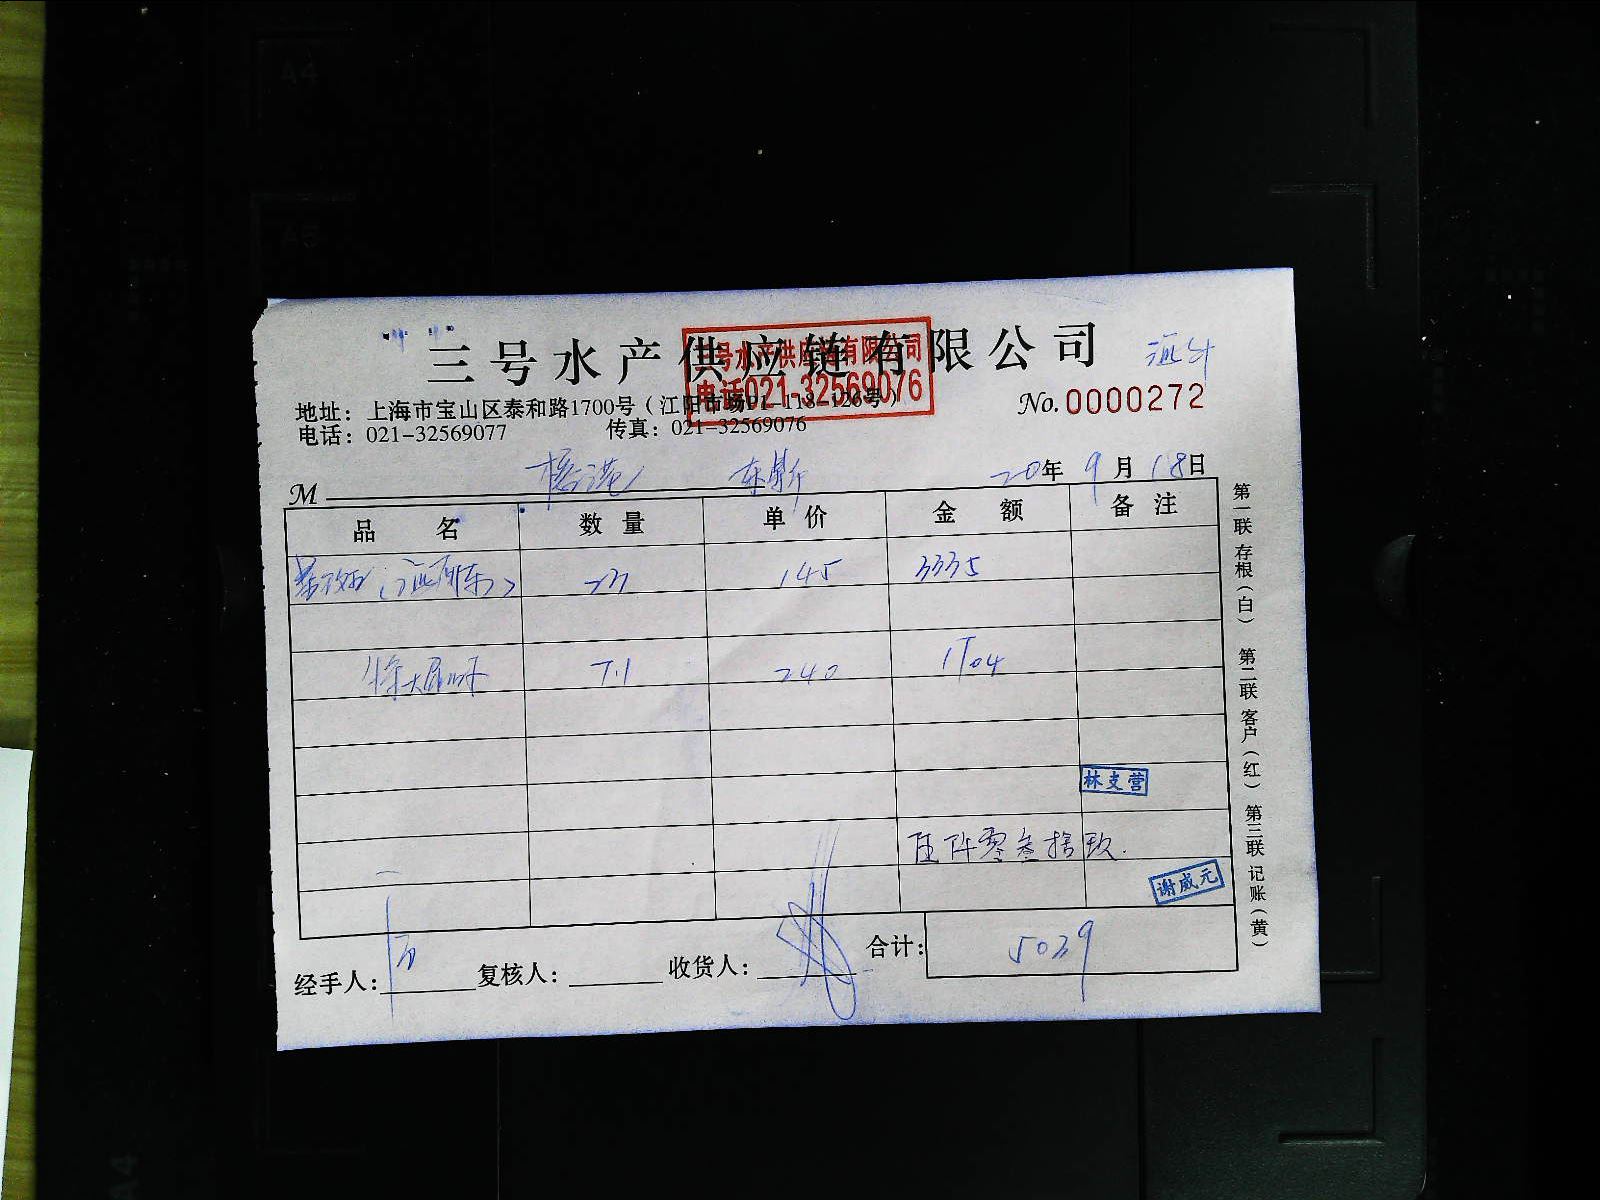 三号水产供应链有限公司
号水产供应链有限公司
电话021-32569076
地址：上海市宝山区泰和路1700号（江阳市场01-118-126号）
No.0000272
电话：021-32569077 传真：021-32569076
M 20年9月18日
品名 数量 单价 金额 备注
23 145 3335
7.1 240 1704
林支营
伍仟零叁拾玖.
谢威元
经手人： 复核人： 收货人： 合计：5039
第一联存根（白） 第二联客户（红） 第三联记账（黄）
A4
A5
A4